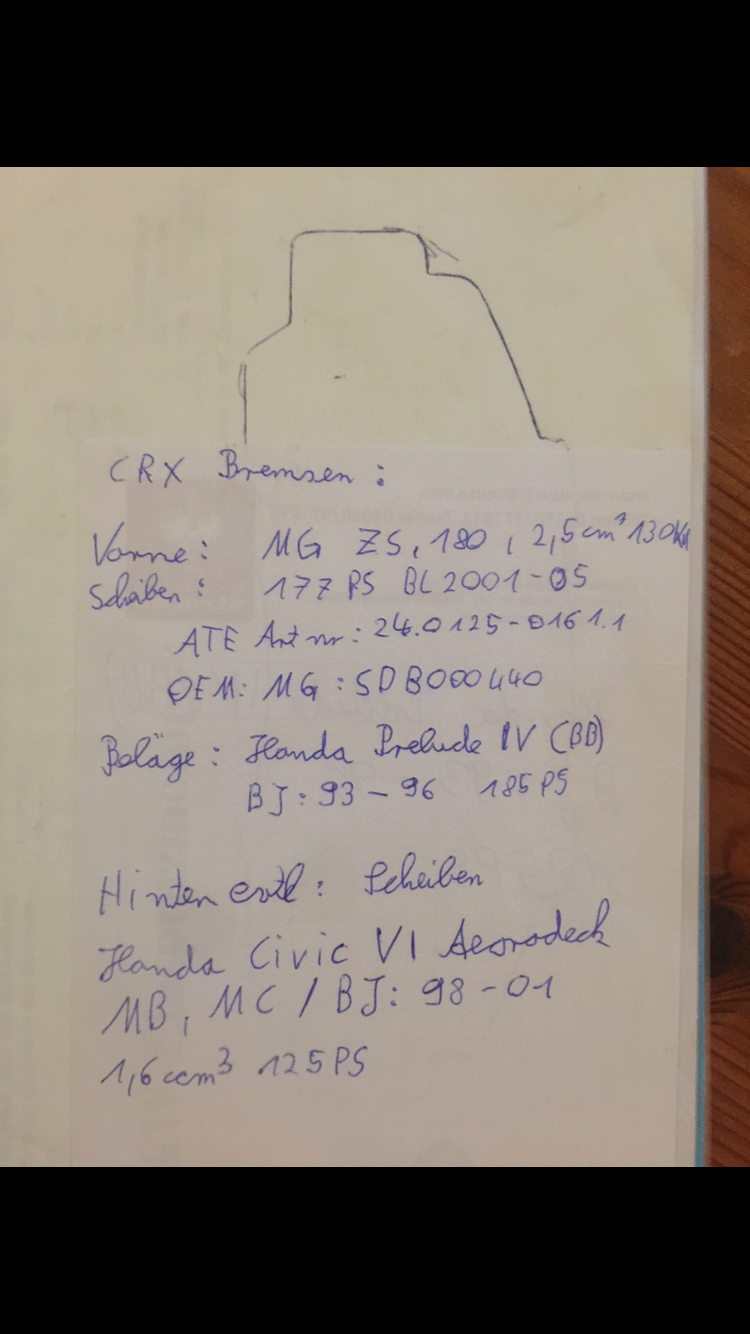 CRX Bremsen:
Vorne: MG ZS, 180, 2,5cm³ 130KW
Scheiben: 177 PS BL2001-05
ATE Art nr.: 24.0125-0161.1
OEM: MG: SDB000440
Beläge: Honda Prelude IV (BB)
BJ: 93-96 185PS
Hinten evtl: Scheiben
Honda Civic VI Aerodeck
MB, MC / BJ: 98-01
1,6ccm³ 125PS